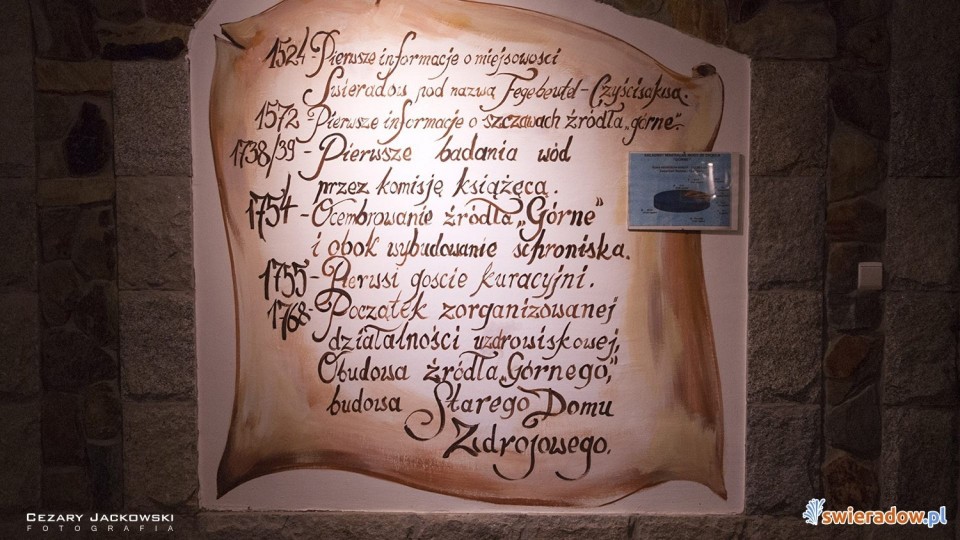 1524-Pierwsze informacje o miejsowości
Świeradów pod nazwą Fegebeutel-Czyścisakwa.
1572-Pierwsze informacje o szczawach źródła „górne".
1738/39 - Pierwsze badania wód
przez komisję książęcą.
1754-Ocembrowanie źródła „Górne"
i obok wybudowanie schroniska.
1755-Pierwsi goście kuracyjni.
1768-Początek zorganizowanej
działalności uzdrowiskowej,
Obudowa źródła „Górnego",
budowa Starego Domu
Zdrojowego.
CEZARY JACKOWSKI
FOTOGRAFIA
swieradow.pl